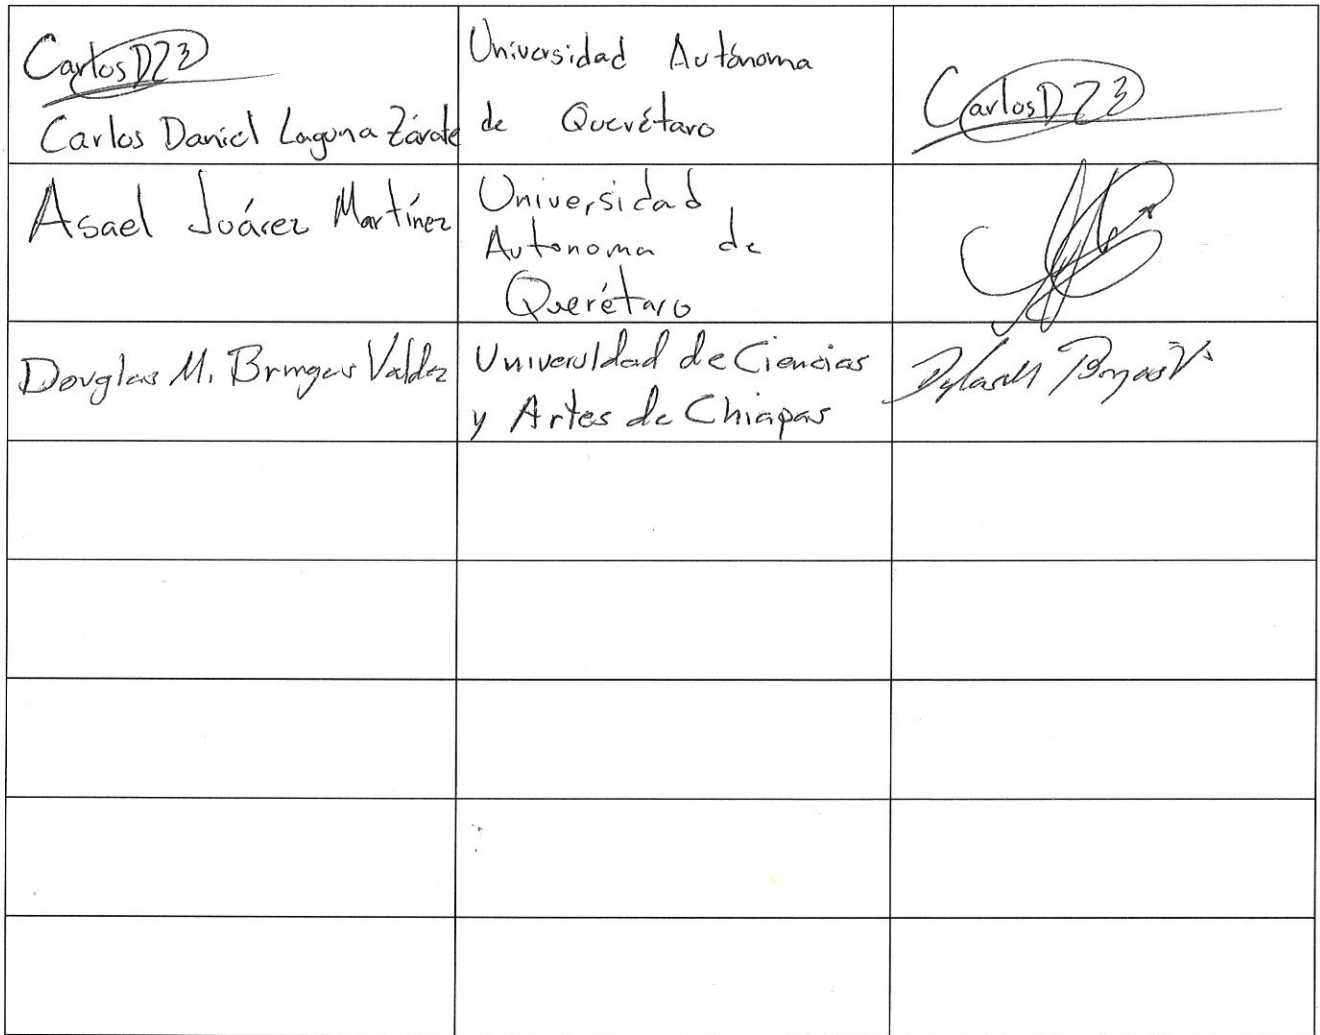 CarlosDZ3
Carlos Daniel Laguna Zárate
Universidad Autónoma
de Querétaro
CarlosDZ3
Asael Juárez Martínez
Universidad
Autonoma de
Querétaro
Douglas M. Bringas Valdez
Universidad de Ciencias
y Artes de Chiapas